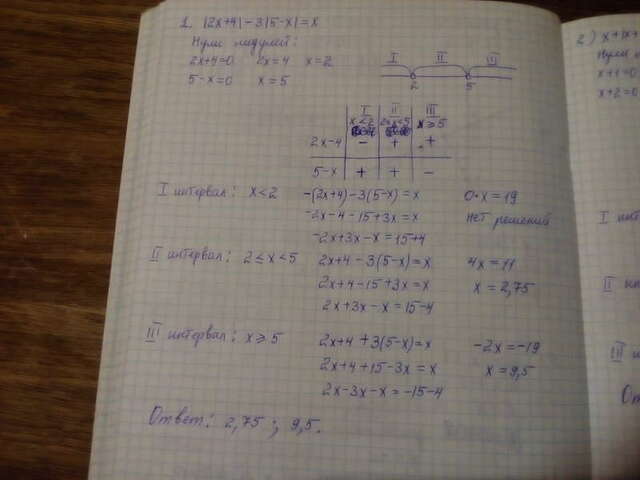 1. |2x+4| - 3|5-x| = x
Нули модулей:
2x+4=0 2x=4 x=2
5-x=0 x=5
I II III
2 5
I II III
x<2 2≤x<5 x≥5
2x-4 - + +
5-x + + -
I интервал: x<2 -(2x+4)-3(5-x)=x 0·x=19
-2x-4-15+3x=x нет решений
-2x+3x-x=15+4
II интервал: 2≤x<5 2x+4-3(5-x)=x 4x=11
2x+4-15+3x=x x=2,75
2x+3x-x=15-4
III интервал: x≥5 2x+4+3(5-x)=x -2x=-19
2x+4+15-3x=x x=9,5
2x-3x-x=-15-4
Ответ: 2,75; 9,5.
2) x+|x+
Нули
x+1=0
x+2=0
I инт
II инт
III и